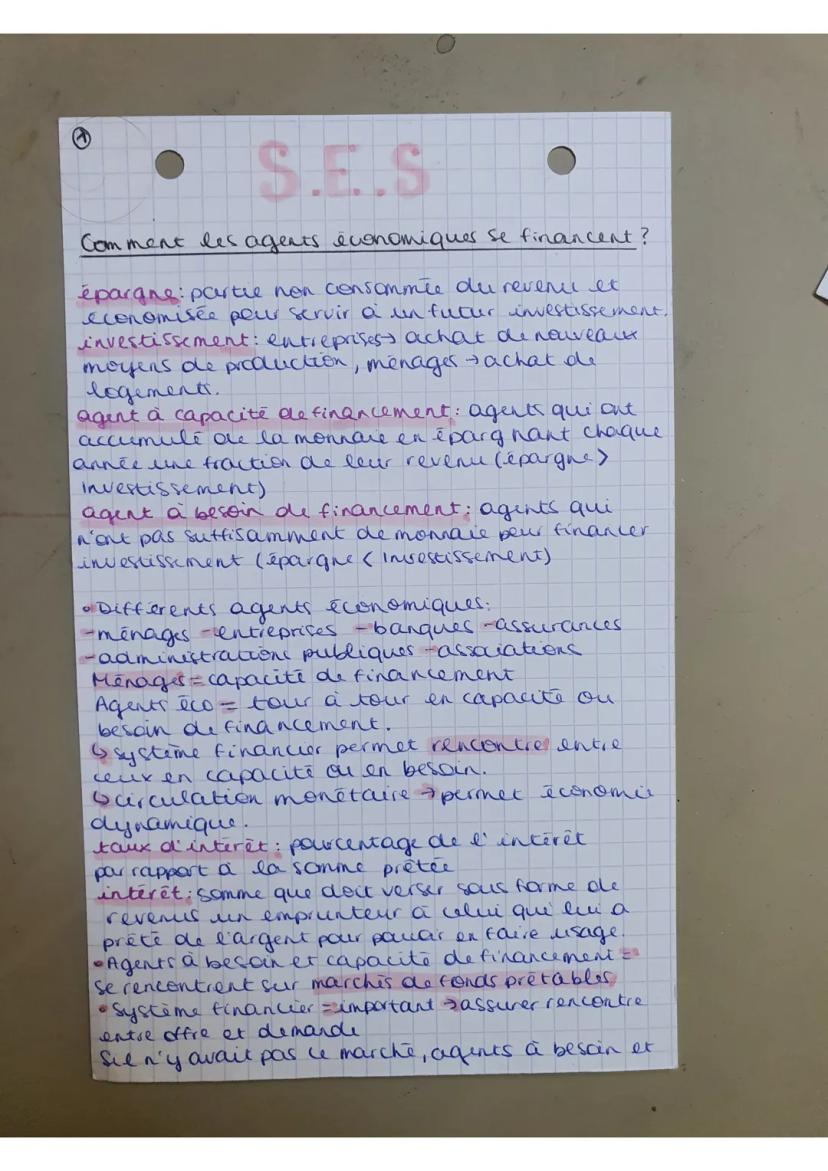 1
S.E.S
Comment les agents économiques se financent ?
épargne : partie non consommée du revenu et
économisée pour servir à un futur investissement.
investissement : entreprises → achat de nouveaux
moyens de production, ménages → achat de
logements.
agent à capacité de financement : agents qui ont
accumulé de la monnaie en épargnant chaque
année une fraction de leur revenu (épargne >
investissement)
agent à besoin de financement : agents qui
n'ont pas suffisamment de monnaie pour financer
investissement (épargne < investissement)
• Différents agents économiques :
-ménages -entreprises -banques -assurances
-administrations publiques -associations
Ménages = capacité de financement
Agents éco = tour à tour en capacité ou
besoin de financement.
↳ système financier permet rencontre entre
ceux en capacité ou en besoin.
↳ circulation monétaire → permet économie
dynamique.
taux d'intérêt : pourcentage de l'intérêt
par rapport à la somme prêtée
intérêt : somme que doit verser sous forme de
revenus un emprunteur à celui qui lui a
prêté de l'argent pour pouvoir en faire usage.
• Agents à besoin et capacité de financement =
se rencontrent sur marchés de fonds prêtables
• Système financier = important → assurer rencontre
entre offre et demande
S'il n'y avait pas ce marché, agents à besoin et